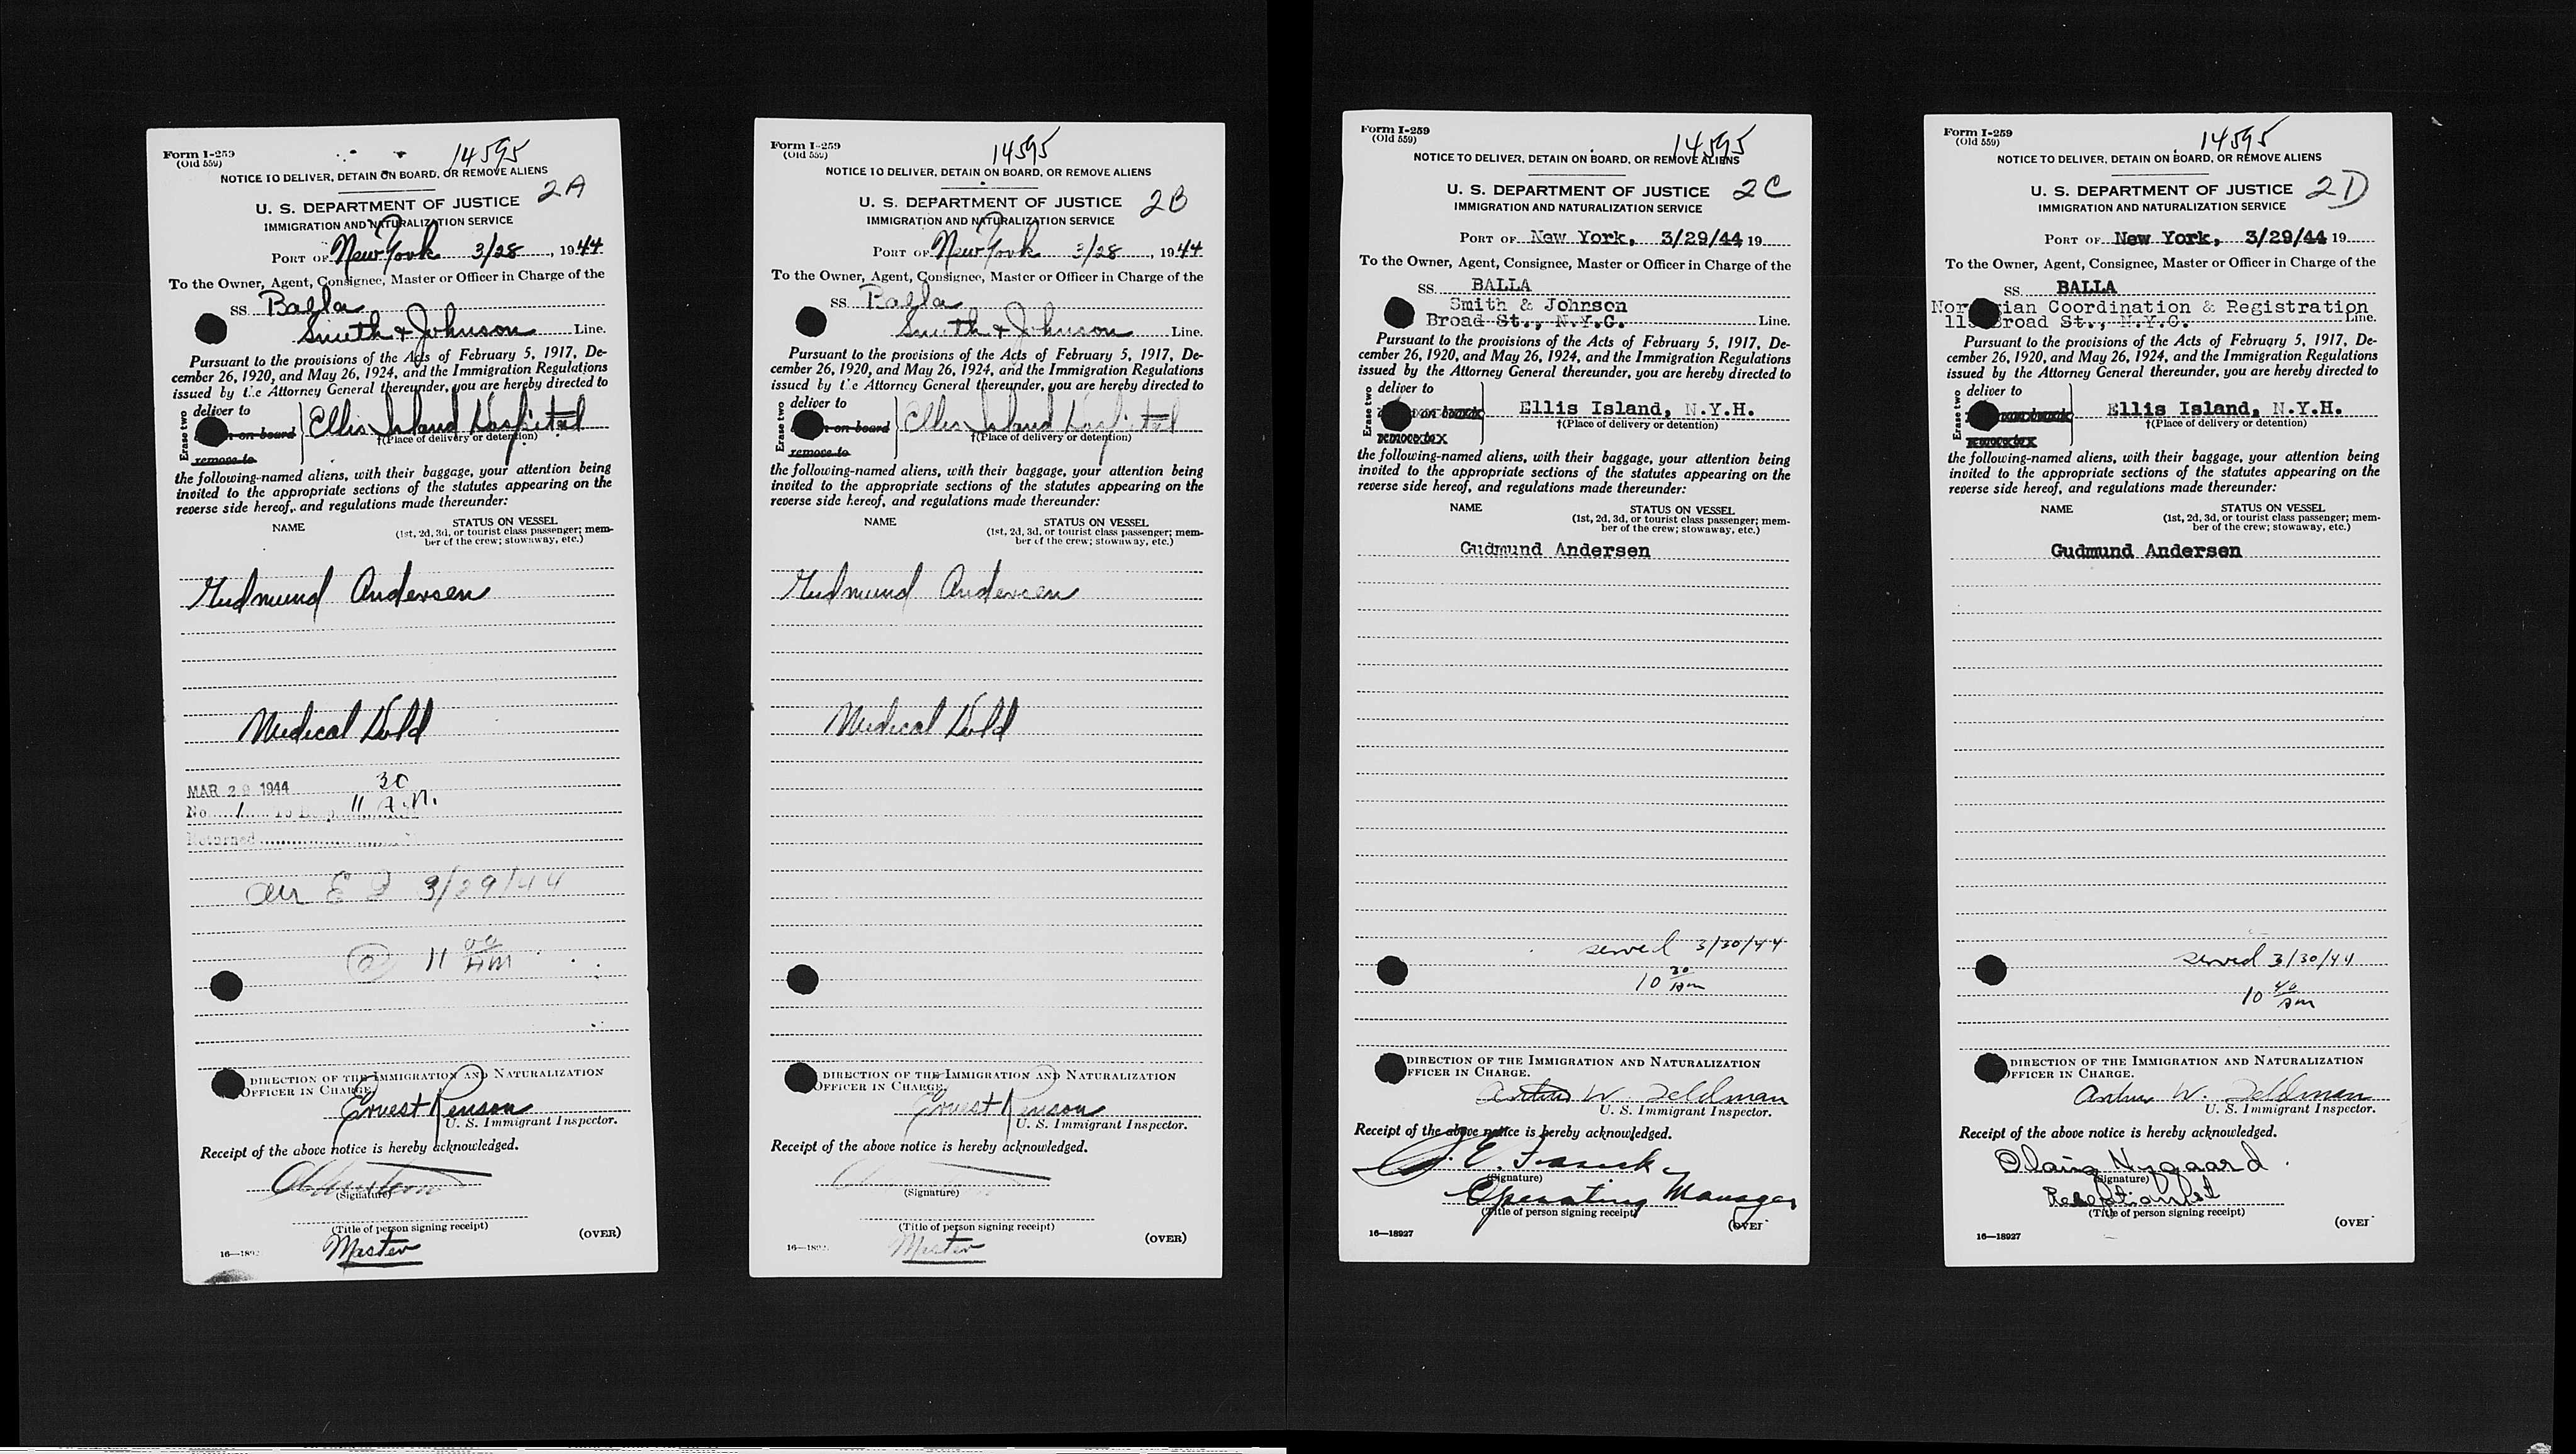 Form I-259
(Old 559)
14595
NOTICE TO DELIVER, DETAIN ON BOARD, OR REMOVE ALIENS
2A
U. S. DEPARTMENT OF JUSTICE
IMMIGRATION AND NATURALIZATION SERVICE
PORT OF New York 3/28, 1944
To the Owner, Agent, Consignee, Master or Officer in Charge of the
SS. Balla
Smith & Johnson Line.
Pursuant to the provisions of the Acts of February 5, 1917, De-
cember 26, 1920, and May 26, 1924, and the Immigration Regulations
issued by the Attorney General thereunder, you are hereby directed to
Erase two
deliver to
on board
remove to
Ellis Island Hospital
†(Place of delivery or detention)
the following-named aliens, with their baggage, your attention being
invited to the appropriate sections of the statutes appearing on the
reverse side hereof, and regulations made thereunder:
NAME
STATUS ON VESSEL
(1st, 2d, 3d, or tourist class passenger; mem-
ber of the crew; stowaway, etc.)
Gudmund Andersen
Medical Hold
MAR 29 1944
30
No. 1 11 A.M.
Returned
arr E I 3/29/44
@ 11 00 AM
DIRECTION OF THE IMMIGRATION AND NATURALIZATION
OFFICER IN CHARGE.
Ernest Renson
U. S. Immigrant Inspector.
Receipt of the above notice is hereby acknowledged.
(Signature)
(Title of person signing receipt)
Master
(OVER)
Form I-259
(Old 559)
14595
NOTICE TO DELIVER, DETAIN ON BOARD, OR REMOVE ALIENS
2B
U. S. DEPARTMENT OF JUSTICE
IMMIGRATION AND NATURALIZATION SERVICE
PORT OF New York 3/28, 1944
To the Owner, Agent, Consignee, Master or Officer in Charge of the
SS. Balla
Smith & Johnson Line.
Pursuant to the provisions of the Acts of February 5, 1917, De-
cember 26, 1920, and May 26, 1924, and the Immigration Regulations
issued by the Attorney General thereunder, you are hereby directed to
Erase two
deliver to
on board
remove to
Ellis Island Hospital
†(Place of delivery or detention)
the following-named aliens, with their baggage, your attention being
invited to the appropriate sections of the statutes appearing on the
reverse side hereof, and regulations made thereunder:
NAME
STATUS ON VESSEL
(1st, 2d, 3d, or tourist class passenger; mem-
ber of the crew; stowaway, etc.)
Gudmund Andersen
Medical Hold
DIRECTION OF THE IMMIGRATION AND NATURALIZATION
OFFICER IN CHARGE.
Ernest Renson
U. S. Immigrant Inspector.
Receipt of the above notice is hereby acknowledged.
(Signature)
(Title of person signing receipt)
Master
(OVER)
Form I-259
(Old 559)
14595
NOTICE TO DELIVER, DETAIN ON BOARD, OR REMOVE ALIENS
U. S. DEPARTMENT OF JUSTICE 2C
IMMIGRATION AND NATURALIZATION SERVICE
PORT OF New York, 3/29/44 19
To the Owner, Agent, Consignee, Master or Officer in Charge of the
SS. BALLA
Smith & Johnson
Broad St., N.Y.C. Line.
Pursuant to the provisions of the Acts of February 5, 1917, De-
cember 26, 1920, and May 26, 1924, and the Immigration Regulations
issued by the Attorney General thereunder, you are hereby directed to
Erase two
deliver to
on board
remove to x
Ellis Island, N.Y.H.
†(Place of delivery or detention)
the following-named aliens, with their baggage, your attention being
invited to the appropriate sections of the statutes appearing on the
reverse side hereof, and regulations made thereunder:
NAME
STATUS ON VESSEL
(1st, 2d, 3d, or tourist class passenger; mem-
ber of the crew; stowaway, etc.)
Gudmund Andersen
served 3/30/44
10 30 AM
DIRECTION OF THE IMMIGRATION AND NATURALIZATION
OFFICER IN CHARGE.
Arthur W. Feldman
U. S. Immigrant Inspector.
Receipt of the above notice is hereby acknowledged.
(Signature)
Operating Manager
(Title of person signing receipt)
(OVER
16—18927
Form I-259
(Old 559)
14595
NOTICE TO DELIVER, DETAIN ON BOARD, OR REMOVE ALIENS
U. S. DEPARTMENT OF JUSTICE 2D
IMMIGRATION AND NATURALIZATION SERVICE
PORT OF New York, 3/29/44 19
To the Owner, Agent, Consignee, Master or Officer in Charge of the
SS. BALLA
Nor ian Coordination & Registration
11 Broad St., N.Y.C. Line.
Pursuant to the provisions of the Acts of February 5, 1917, De-
cember 26, 1920, and May 26, 1924, and the Immigration Regulations
issued by the Attorney General thereunder, you are hereby directed to
Erase two
deliver to
Ellis Island, N.Y.H.
†(Place of delivery or detention)
the following-named aliens, with their baggage, your attention being
invited to the appropriate sections of the statutes appearing on the
reverse side hereof, and regulations made thereunder:
NAME
STATUS ON VESSEL
(1st, 2d, 3d, or tourist class passenger; mem-
ber of the crew; stowaway, etc.)
Gudmund Andersen
served 3/30/44
10 40 AM
DIRECTION OF THE IMMIGRATION AND NATURALIZATION
OFFICER IN CHARGE.
Arthur W. Feldman
U. S. Immigrant Inspector.
Receipt of the above notice is hereby acknowledged.
Nygaard
(Signature)
Receptionist
(Title of person signing receipt)
(OVER
16—18927